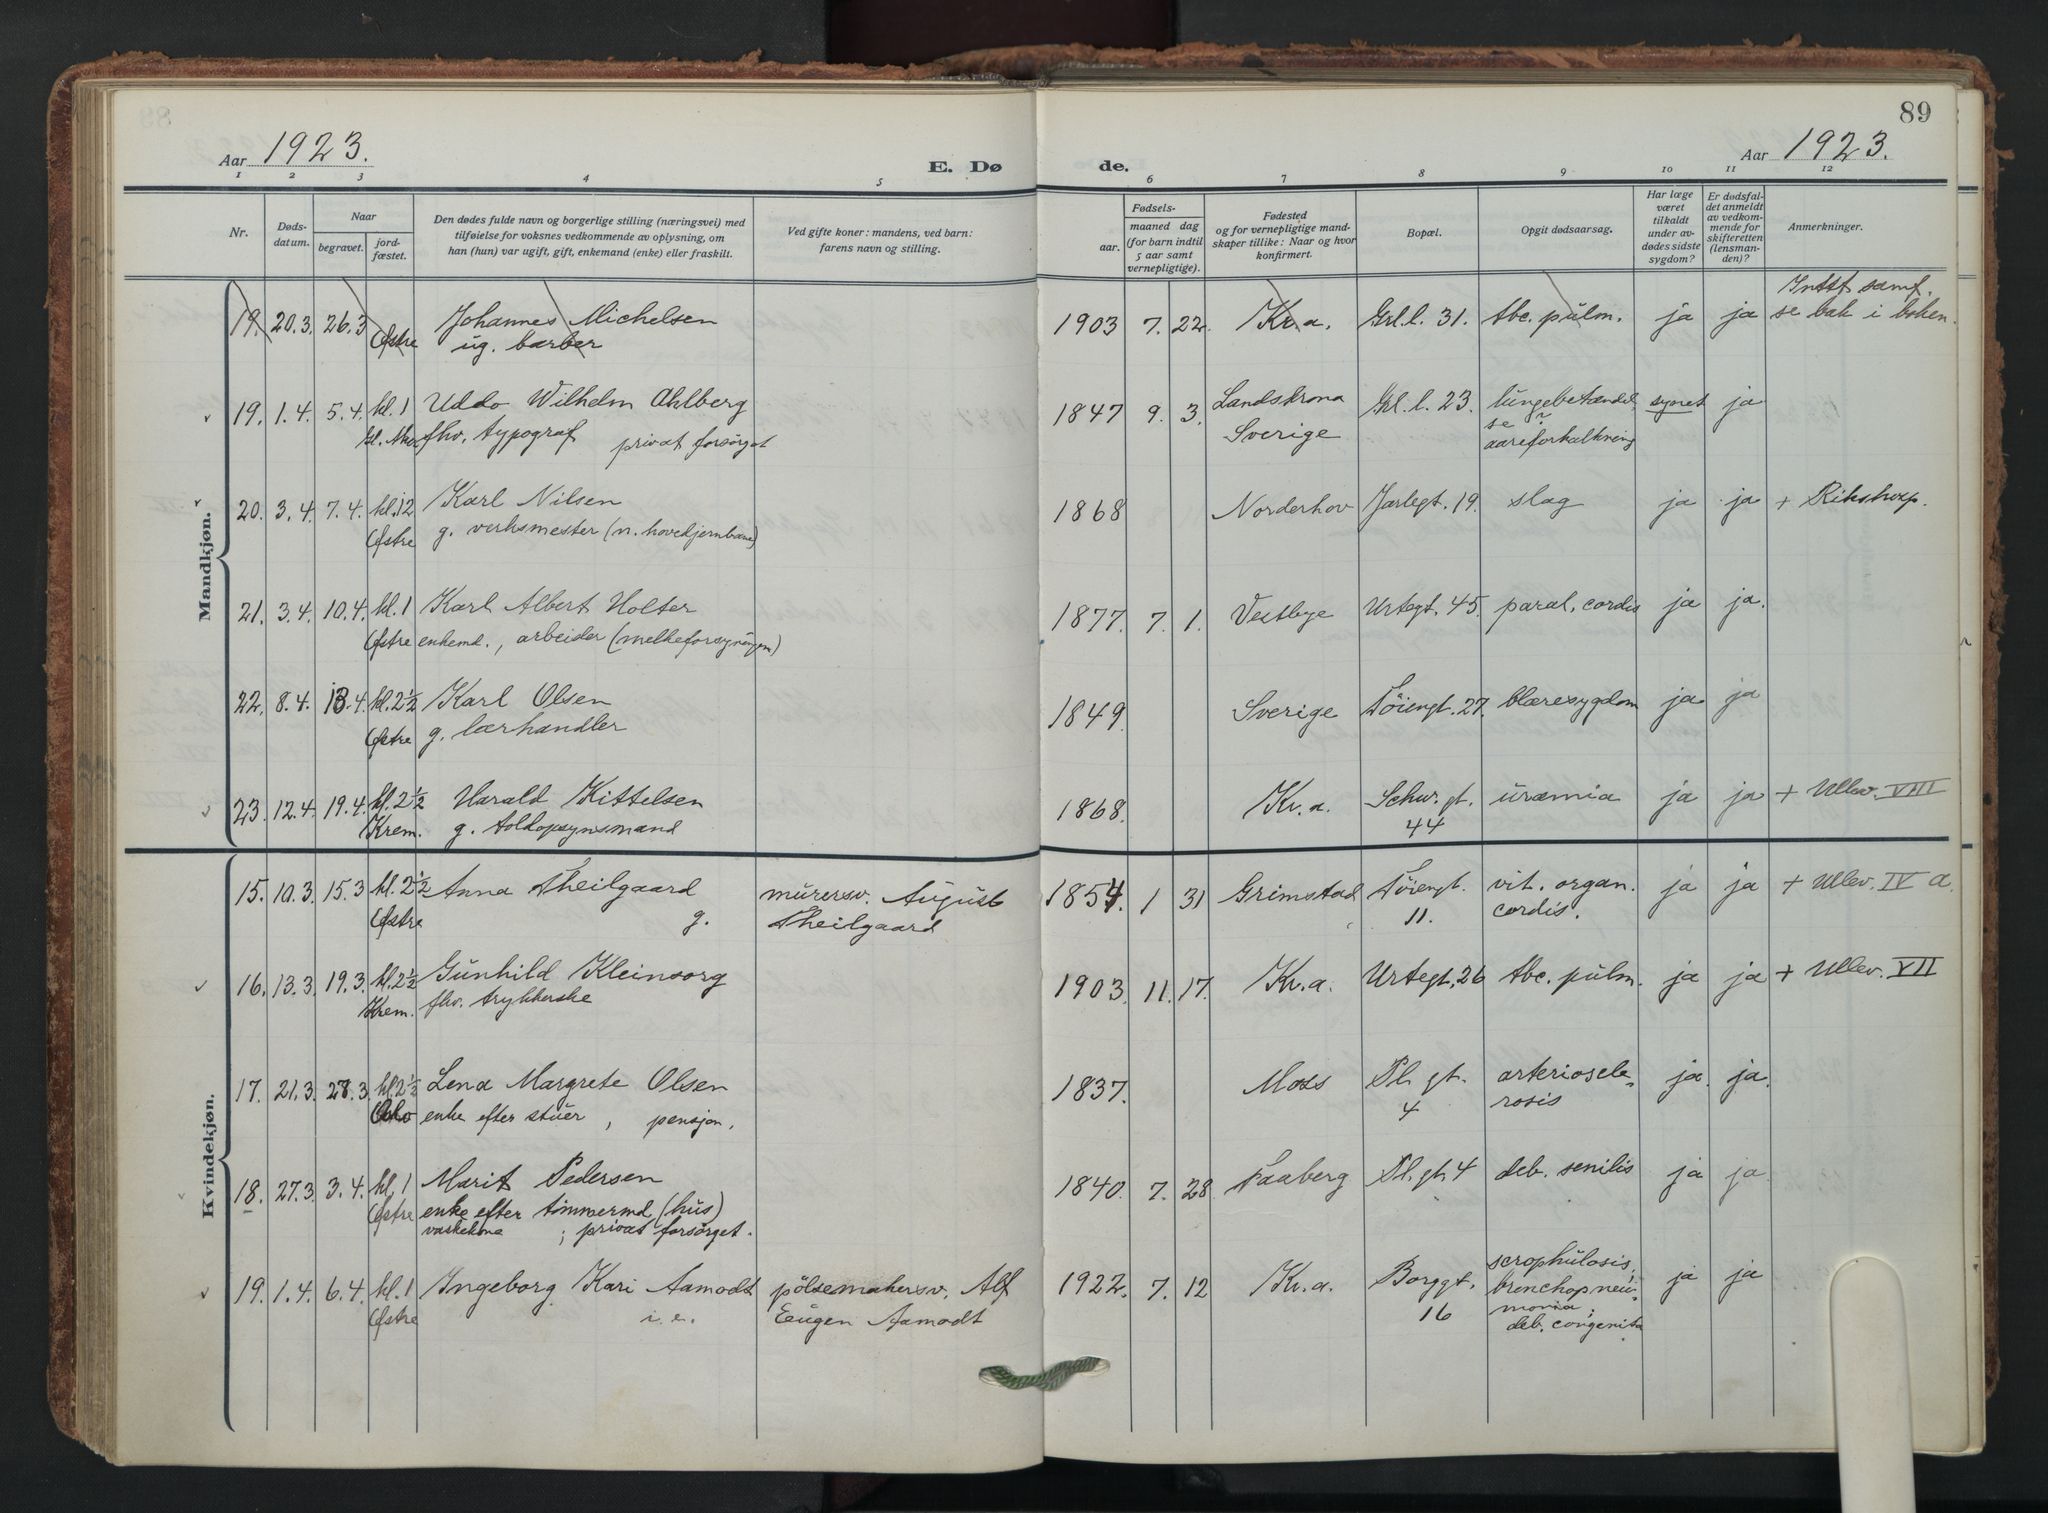 89
Aar 1923.
E. Dø
de.
Aar 1923.
1 2 3 4 5 6 7 8 9 10 11 12
Nr.
Døds-
datum.
Naar
begravet.
jord-
fæstet.
Den dødes fulde navn og borgerlige stilling (næringsvei) med
tilføielse for voksnes vedkommende av oplysning, om
han (hun) var ugift, gift, enkemand (enke) eller fraskilt.
Ved gifte koner: mandens, ved barn:
farens navn og stilling.
Fødsels-
aar.
maaned dag
(for barn indtil
5 aar samt
vernepligtige).
Fødested
og for vernepligtige mand-
skaper tillike: Naar og hvor
konfirmert.
Bopæl.
Opgit dødsaarsag.
Har læge
været
tilkaldt
under av-
dødes sidste
sygdom?
Er dødsfal-
det anmeldt
av vedkom-
mende for
skifteretten
(lensman-
den)?
Anmerkninger.
Mandkjøn.
19. 20.3. 26.3 Østre Johannes Michelsen
ug. barber
1903 7. 22. Kr.a. Grl.l. 31. tbc. pulm. ja ja Intet samf.
se bak i boken.
19. 1.4. 5.4. kl. 1 Uddo Wilhelm Ahlberg
fhv. typograf privat forsörget
1847 9. 3. Landskrona
Sverige
Grl. l. 23. lungebetændel,
se
aareforkalkning
synet ja
20. 3.4. 7.4. kl. 12 Karl Nilsen
Østre g. verksmester (n. hovedjernbane)
1868 Norderhov Jarlegt. 19. slag ja ja + Rikshosp.
21. 3.4. 10.4. kl. 1 Karl Albert Holter
Østre enkemd., arbeider (melkeforsyningen)
1877. 7. 1. Vestbye Urtegt. 45. paral. cordis ja ja.
22. 8.4. 13.4. kl. 2½ Karl Olsen
Østre g. lærhandler
1849. Sverige Töiengt. 27. blæresygdom ja ja
23. 12.4. 19.4. kl. 2½ Harald Kittelsen
Krem. g. toldopsynsmand
1868. Kr.a. Schw. gt.
44
uræmia ja ja + Ullev. VIII
Kvindekjøn.
15. 10.3. 15.3 kl. 2½ Anna Theilgaard
Østre g.
murersv. August
Theilgaard
1854. 1 31 Grimstad Töiengt.
11.
vit. organ.
cordis.
ja ja + Ullev. IV a.
16. 13.3. 19.3. kl. 2½ Gunhild Kleinsorg
Krem. fhv. trykkerske
1903. 11. 17. Kr.a. Urtegt. 26 tbc. pulm. ja ja + Ullev. VII
17. 21.3. 28.3. kl. 2½ Lena Margrete Olsen
enke efter stuer, pensjon.
1837. Moss Pl. gt.
4
arterioscle-
rosis
ja. ja.
18. 27.3. 3.4. kl. 1 Marit Pedersen
Østre enke efter tömmermd. (hus)
vaskekone ; privat forsörget.
1840. 7. 28. Faaberg Pl. gt. 4 deb. senilis ja ja.
19. 1.4. 6.4. kl. 1 Ingeborg Kari Aamodt
Østre i. e.
pölsemakersv. Alf
Eugen Aamodt
1922. 7. 12 Kr.a. Borggt.
16
scrophulosis;
bronchopneu-
monia;
deb. congenita
ja ja